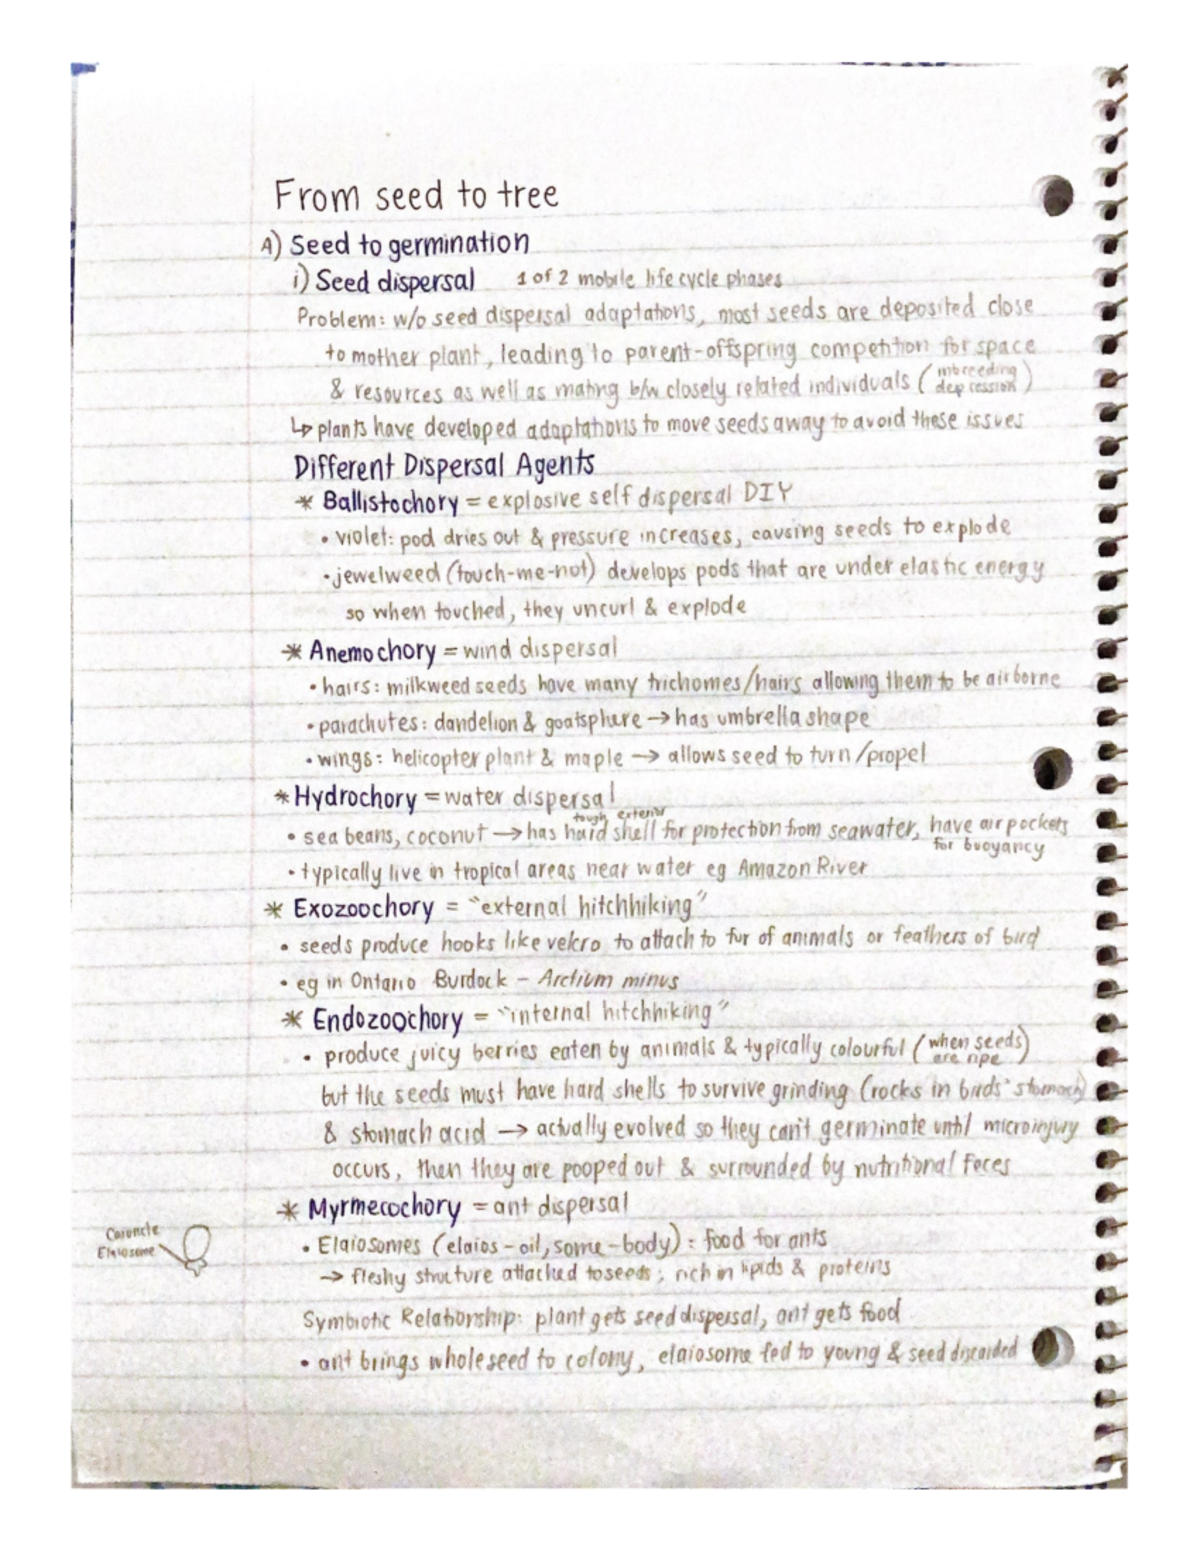 From seed to tree
A) Seed to germination
i) Seed dispersal 1 of 2 mobile life cycle phases
Problem: w/o seed dispersal adaptations, most seeds are deposited close
to mother plant, leading to parent-offspring competition for space
& resources as well as mating b/w closely related individuals (inbreeding depression)
↳ plants have developed adaptations to move seeds away to avoid these issues
Different Dispersal Agents
* Ballistochory = explosive self dispersal DIY
• violet: pod dries out & pressure increases, causing seeds to explode
• jewelweed (touch-me-not) develops pods that are under elastic energy
so when touched, they uncurl & explode
* Anemochory = wind dispersal
• hairs: milkweed seeds have many trichomes/hairs allowing them to be airborne
• parachutes: dandelion & goatsphere → has umbrella shape
• wings: helicopter plant & maple → allows seed to turn/propel
* Hydrochory = water dispersal
tough exterior
• sea beans, coconut → has hard shell for protection from seawater, have air pockets
for buoyancy
• typically live in tropical areas near water eg Amazon River
* Exozoochory = "external hitchhiking"
• seeds produce hooks like velcro to attach to fur of animals or feathers of bird
• eg in Ontario Burdock - Arctium minus
* Endozoochory = "internal hitchhiking"
• produce juicy berries eaten by animals & typically colourful (when seeds are ripe)
but the seeds must have hard shells to survive grinding (rocks in birds' stomach)
& stomach acid → actually evolved so they can't germinate until microinjury
occurs, then they are pooped out & surrounded by nutritional feces
* Myrmecochory = ant dispersal
Caruncle
Elaiosome
• Elaiosomes (elaios-oil, some-body) = food for ants
→ fleshy structure attached to seeds; rich in lipids & proteins
Symbiotic Relationship: plant gets seed dispersal, ant gets food
• ant brings whole seed to colony, elaiosome fed to young & seed discarded